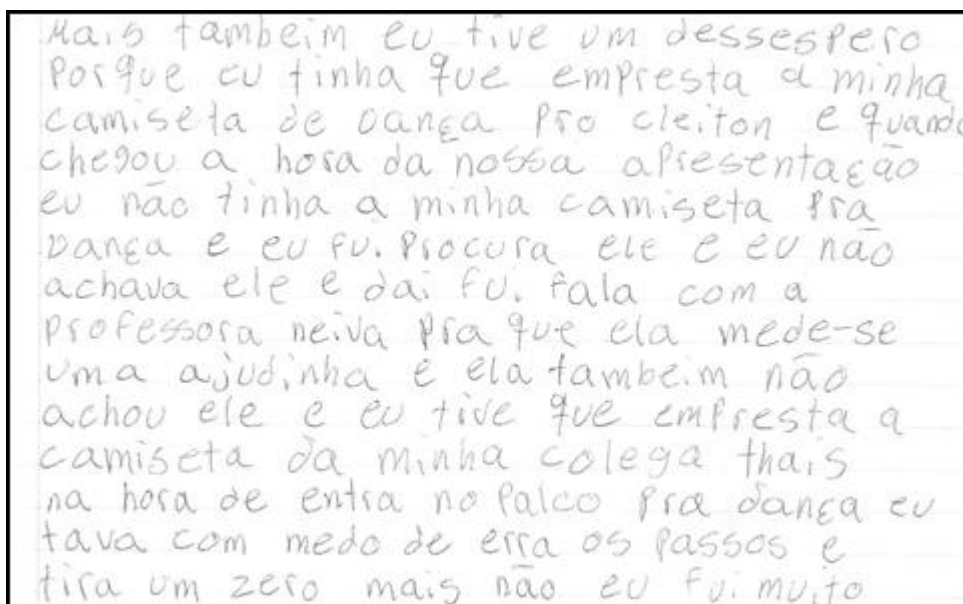 Mais tambeim eu tive um dessespero
Porque eu tinha que empresta a minha
camiseta de dança pro cleiton e quando
chegou a hora da nossa apresentação
eu não tinha a minha camiseta pra
dança e eu fui procura ele e eu não
achava ele e dai fui fala com a
professora neiva pra que ela mede-se
uma ajudinha e ela tambeim não
achou ele e eu tive que empresta a
camiseta da minha colega thais
na hora de entra no palco pra dança eu
tava com medo de erra os passos e
tira um zero mais não eu fui muito